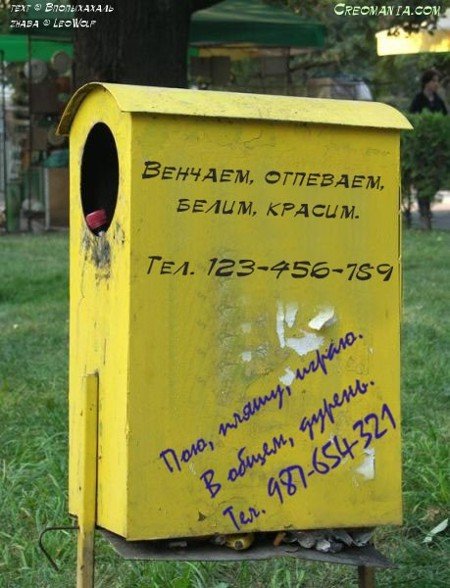 text © Впопыхахаль
zhaba © LeoWolf
Creomania.com
Венчаем, отпеваем,
белим, красим.
Тел. 123-456-789
Пою, пляшу, играю.
В общем, дурень.
Тел. 987-654-321